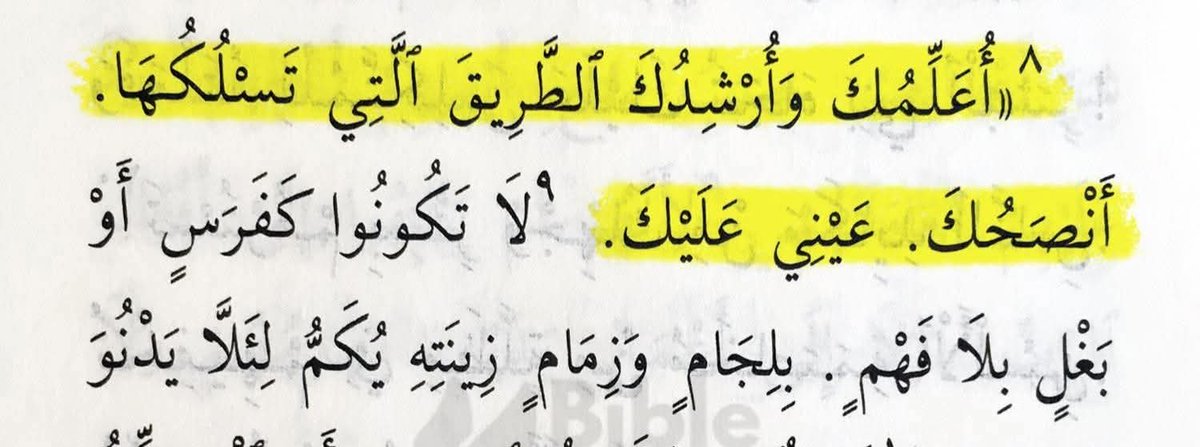 ٨ «أُعَلِّمُكَ وَأُرْشِدُكَ ٱلطَّرِيقَ ٱلَّتِي تَسْلُكُهَا.
أَنْصَحُكَ. عَيْنِي عَلَيْكَ. ٩ لَا تَكُونُوا كَفَرَسٍ أَوْ
بَغْلٍ بِلَا فَهْمٍ. بِلِجَامٍ وَزِمَامٍ زِينَتِهِ يُكَمُّ لِئَلَّا يَدْنُوَ
Bible